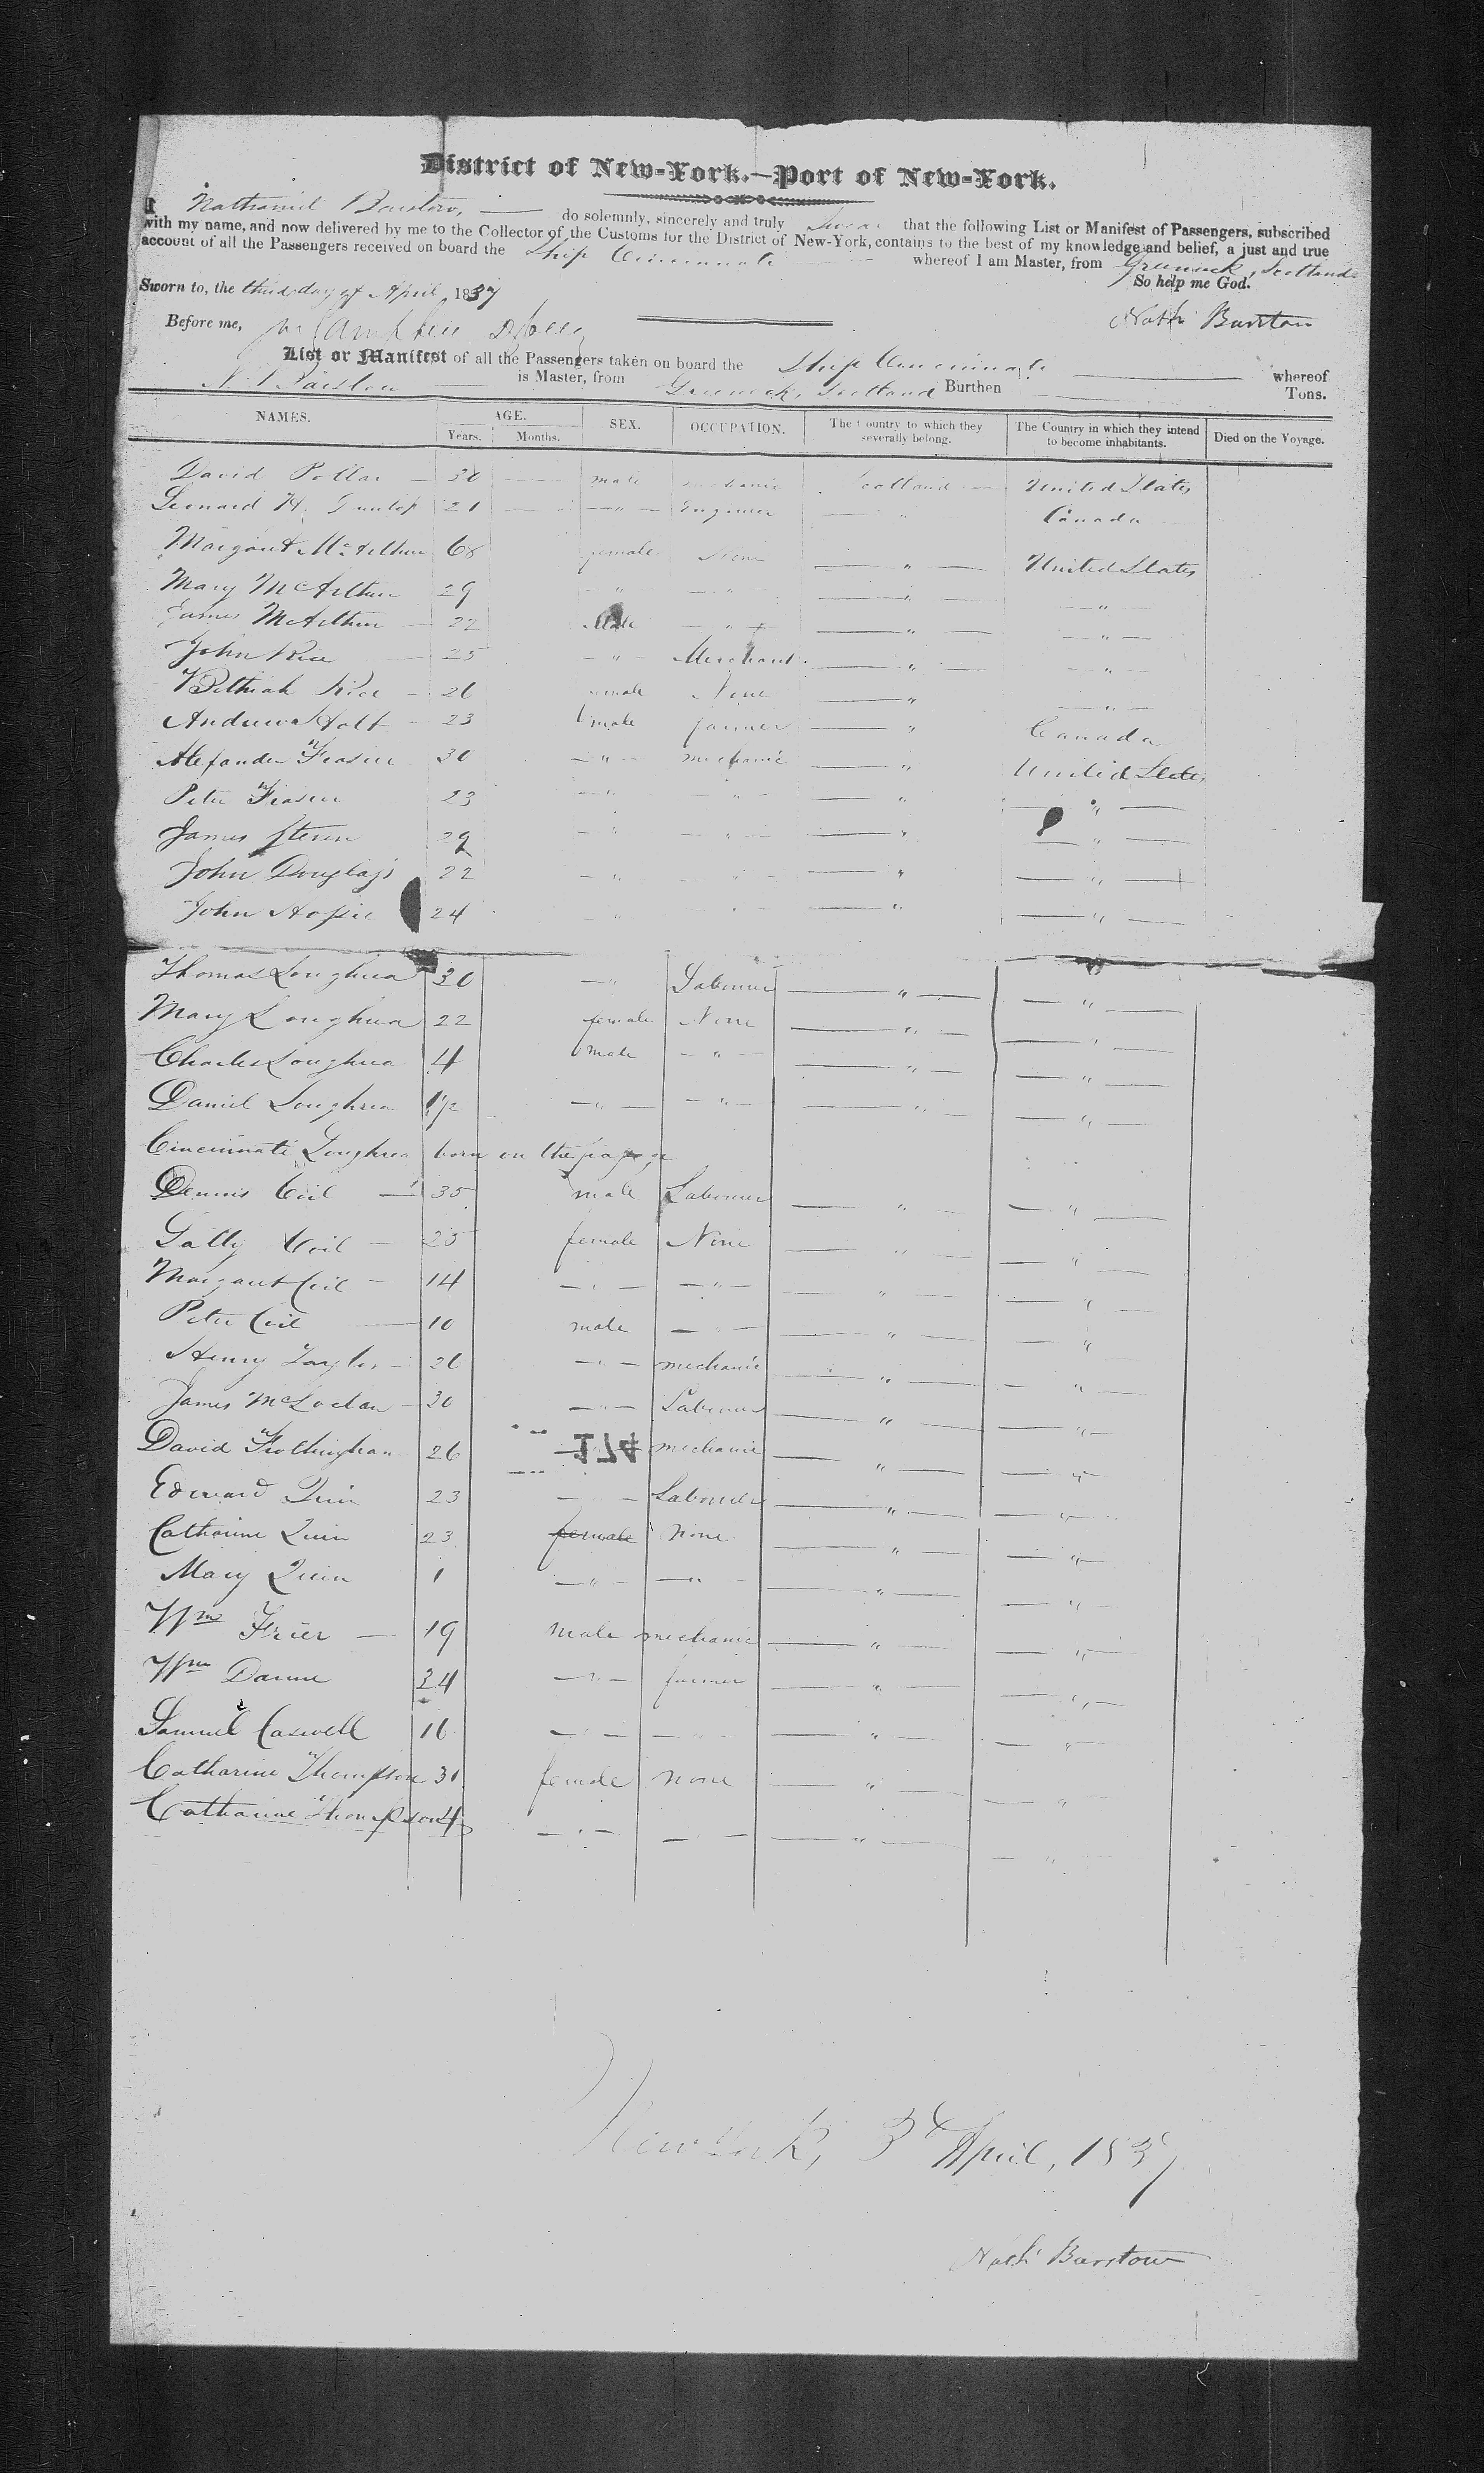 District of New-York.—Port of New-York.
I Nathaniel Barstow, do solemnly, sincerely and truly Swear that the following List or Manifest of Passengers, subscribed
with my name, and now delivered by me to the Collector of the Customs for the District of New-York, contains to the best of my knowledge and belief, a just and true
account of all the Passengers received on board the Ship Cincinnati whereof I am Master, from Greenock, Scotland
Sworn to, the third day of April 1837 So help me God.
Before me, Nathl Barstow
List or Manifest of all the Passengers taken on board the Ship Cincinnati whereof
N. Barstow is Master, from Greenock, Scotland Burthen Tons.
NAMES. AGE. SEX. OCCUPATION. The Country to which they severally belong. The Country in which they intend to become inhabitants. Died on the Voyage.
Years. Months.
David Pollar — 30 — male mechanic Scotland — United States
Leonard H. Dunlop 21 — " — Engineer " Canada
Margaret McArthur 68 female None — " — United States
Mary McArthur 29 " — " — " — — " —
James McArthur — 22 Male — " — — " — — " —
John Rice — 25 — " — Merchant. — " — — " —
Bethiah Rice — 26 female None — " — " —
Andrew Holt — 23 male farmer — " Canada
Alexander Frasier 30 — " — mechanic — " United States
Peter Frasier 23 — " " — " — " —
James Steven 29 — " — " — — " — " —
John Douglass 22 — " — " — " — " —
John 24 " " — " — " —
Thomas Loughrea 30 — " Labourer — " — — " —
Mary Loughrea 22 female None — " — — " —
Charles Loughrea 4 male — " — — " — — " —
Daniel Loughrea 1½ — " — — " — — " — — " —
Cincinnati Loughrea born on the passage
Dennis Coil — 35 male Labourer — " — — " —
Sally Coil — 25 female None — " — — " —
Margaret Coil — 14 — " — — " — " — — " —
Peter Coil — 10 male — " — — " — — " —
Henry Taylor — 26 — " — mechanic — " — — " —
James McLoclan — 30 — " — Labourer — " — — " —
David Frothingham 26 — " — mechanic — " — — " —
174
Edward Quin 23 — — Labourer — " — — " —
Catharine Quin 23 female None — " — — " —
Mary Quin 1 — " — — " — " — — " —
Wm Frier — 19 male mechanic — " — — " —
Wm Danne 34 — " — farmer — " — — " —
Samuel Caswell 16 — " — — " — — " — — " —
Catharine Thompson 31 female none — " — — " —
Catharine Thompson 4 — " — — " — — " — — " —
New York, 3d April, 1837
Nathl Barstow